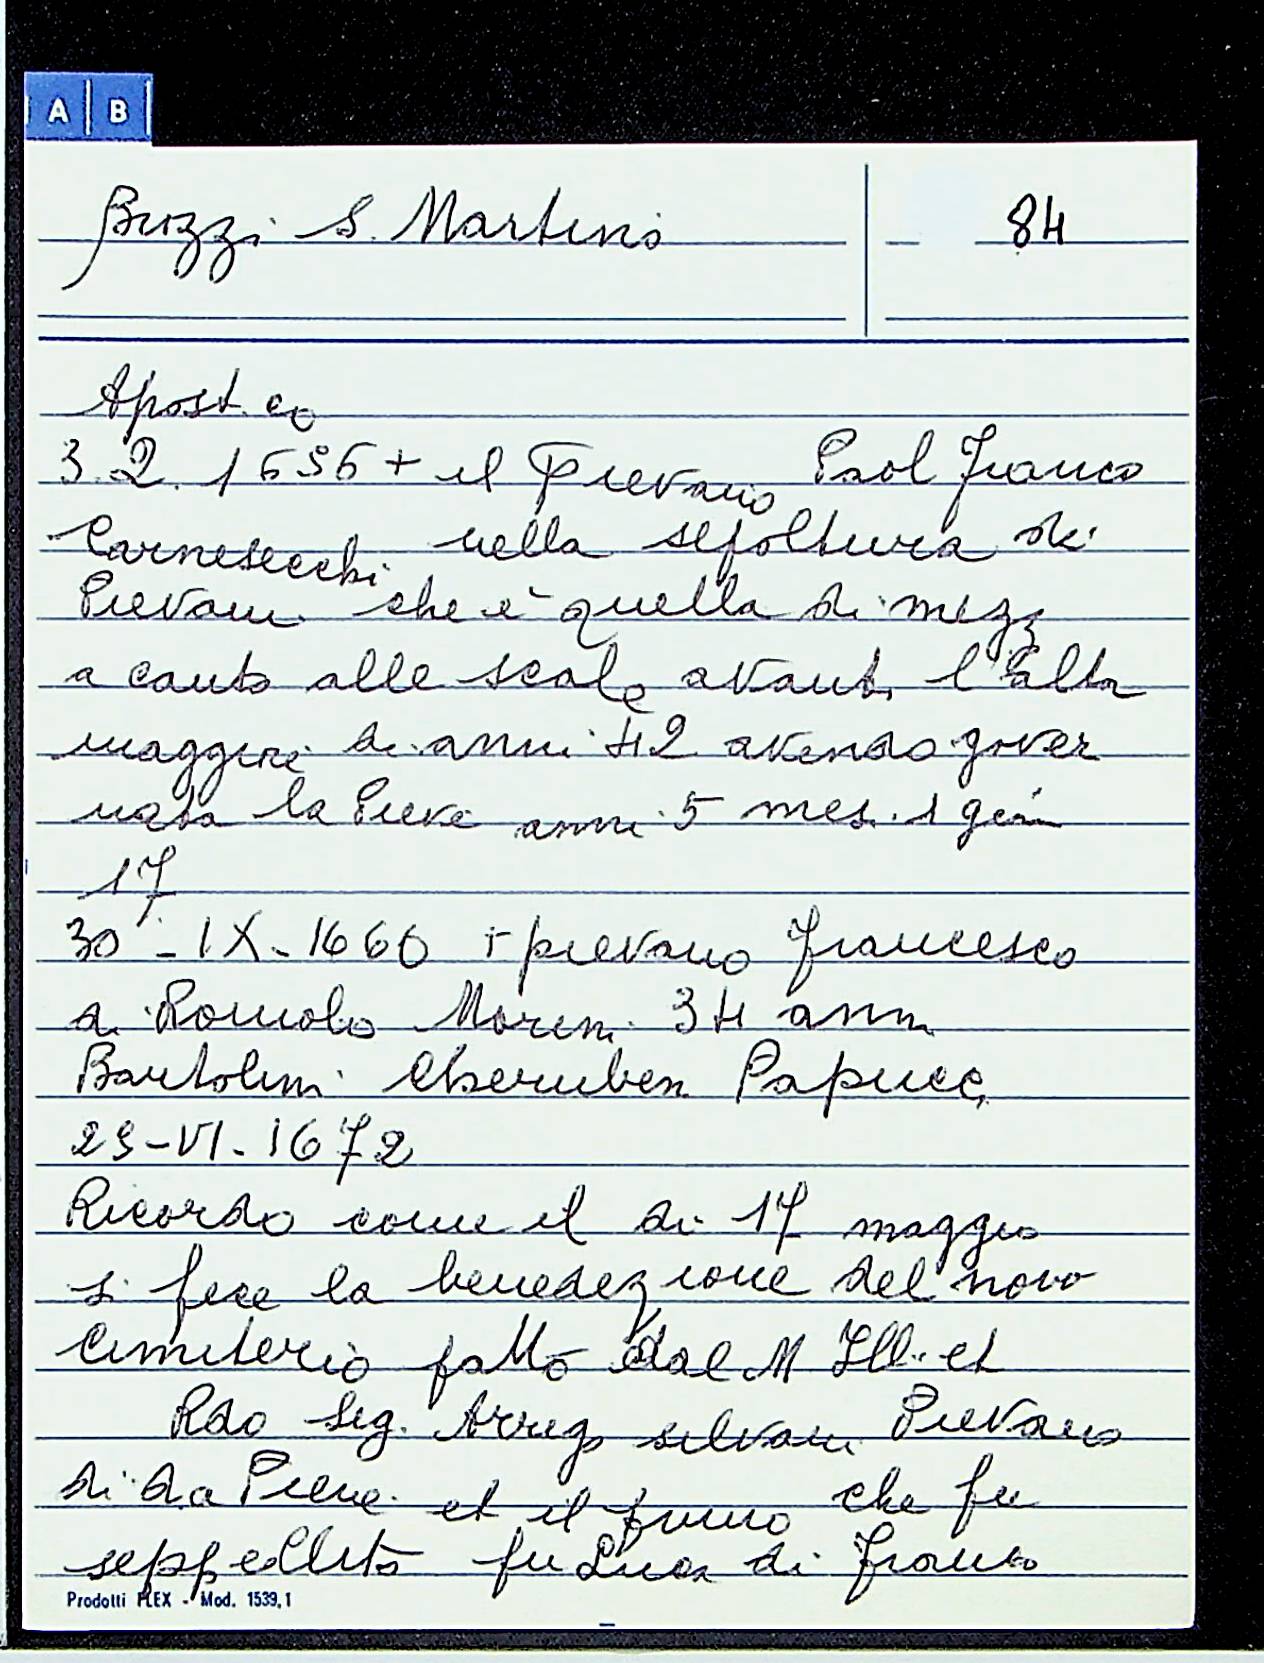 A B
Brozzi S. Martino 84
Apost. co
3.2.1656 + il Pievano Paol Franco
Carnesecchi nella sepoltura de'
Pievani che è quella di mezz
a canto alle scale avanti l'alta
maggire di anni 42 avendo gover
nata la Pieve anni 5 mes. 1 gior
17
30-IX-1660 + pievano Francesco
di Romolo Moreni 34 anni
Bartolini Cheruben Papucc
29-VI-1672
Ricordo come il di 17 maggio
si fece la benedezione del novo
Cimiterio fatto dal M Ill. et
Rdo Sig. Arrigo silvani Pievano
di da Pieve et il primo che fu
seppellito fu Luca di franco
Prodotti FLEX - Mod. 1539,1